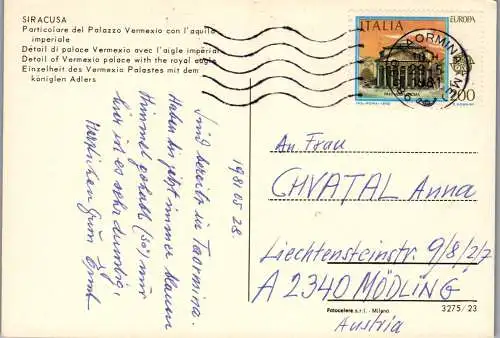 SIRACUSA
Particolare del Palazzo Vermexio con l'aquila
imperiale
Détail di palace Vermexio avec l'aigle impérial
Detail of Vermexio palace with the royal eagle
Einzelheit des Vermexio Palastes mit dem
königlen Adlers
ITALIA
EUROPA
200
TAORMINA
1981 05 28.
Sind bereits in Taormina.
Haben bis jetzt immer blauen
Himmel gehabt (30°) nur
hier ist es sehr dunstig.
Herzlichen Gruß
An Frau
CHVATAL Anna
Liechtensteinstr. 9/8/2/7
A 2340 MÖDLING
Austria
Fotocelere s.r.l. - Milano
3275/23